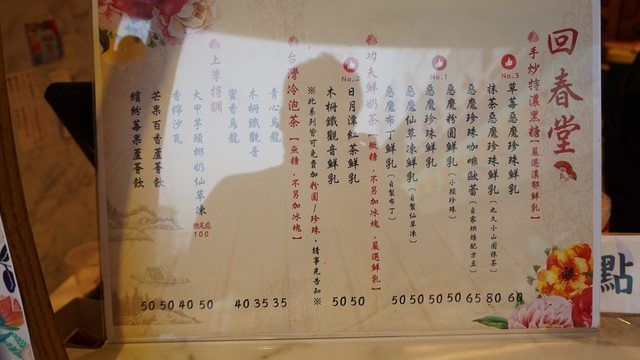 回春堂
手炒特濃黑糖【嚴選濃郁鮮乳】
No.3
草莓惡魔珍珠鮮乳 60
抹茶惡魔珍珠鮮乳【丸久小山園抹茶】 80
惡魔珍珠咖啡歐蕾【自家烘焙配方豆】 65
惡魔粉圓鮮乳【小顆珍珠】 50
No.1
惡魔珍珠鮮乳 50
惡魔仙草凍鮮乳【自製仙草凍】 50
惡魔布丁鮮乳【自製布丁】 50
功夫鮮奶茶【微糖.不另加冰塊.嚴選鮮乳】
No.2
日月潭紅茶鮮乳 50
木柵鐵觀音鮮乳 50
※此系列皆可免費加粉圓/珍珠,請事先告知※
台灣冷泡茶【無糖.不另加冰塊】
青心烏龍 35
木柵鐵觀音 35
蜜香烏龍 40
上等特調
大甲芋頭椰奶仙草凍 50
100
香檸沙瓦 40
芒果百香蘆薈飲 50
繽紛莓果蘆薈飲 50
點